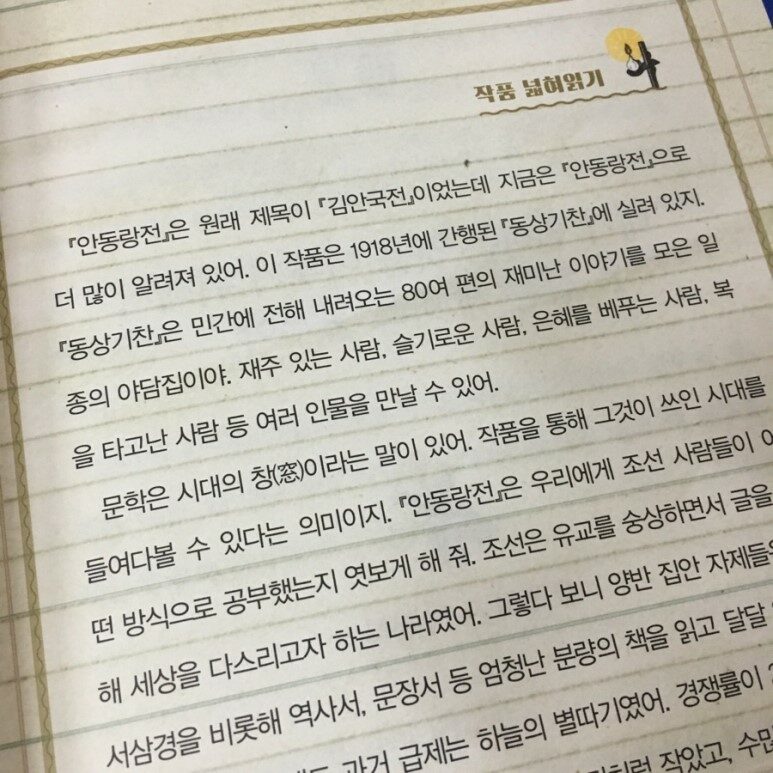 작품 넓혀읽기
『안동랑전』은 원래 제목이 『김안국전』이었는데 지금은 『안동랑전』으로
더 많이 알려져 있어. 이 작품은 1918년에 간행된 『동상기찬』에 실려 있지.
『동상기찬』은 민간에 전해 내려오는 80여 편의 재미난 이야기를 모은 일
종의 야담집이야. 재주 있는 사람, 슬기로운 사람, 은혜를 베푸는 사람, 복
을 타고난 사람 등 여러 인물을 만날 수 있어.
문학은 시대의 창(窓)이라는 말이 있어. 작품을 통해 그것이 쓰인 시대를
들여다볼 수 있다는 의미이지. 『안동랑전』은 우리에게 조선 사람들이 어
떤 방식으로 공부했는지 엿보게 해 줘. 조선은 유교를 숭상하면서 글을
해 세상을 다스리고자 하는 나라였어. 그렇다 보니 양반 집안 자제들은
서삼경을 비롯해 역사서, 문장서 등 엄청난 분량의 책을 읽고 달달
과거 급제는 하늘의 별따기였어. 경쟁률이
작았고, 수만